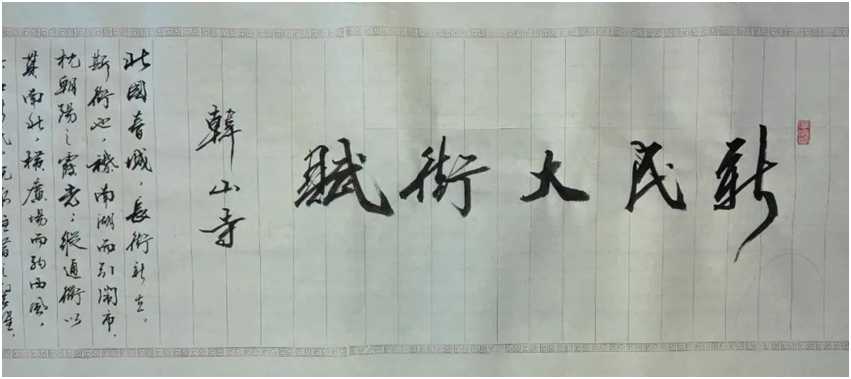 新民大街賦
韓小寺
北國春城，長街新立。
斯街也，襟南湖而引闹市，
枕朝陽之霞光；縱通衢以
莫南北，橫廣場而納西風，